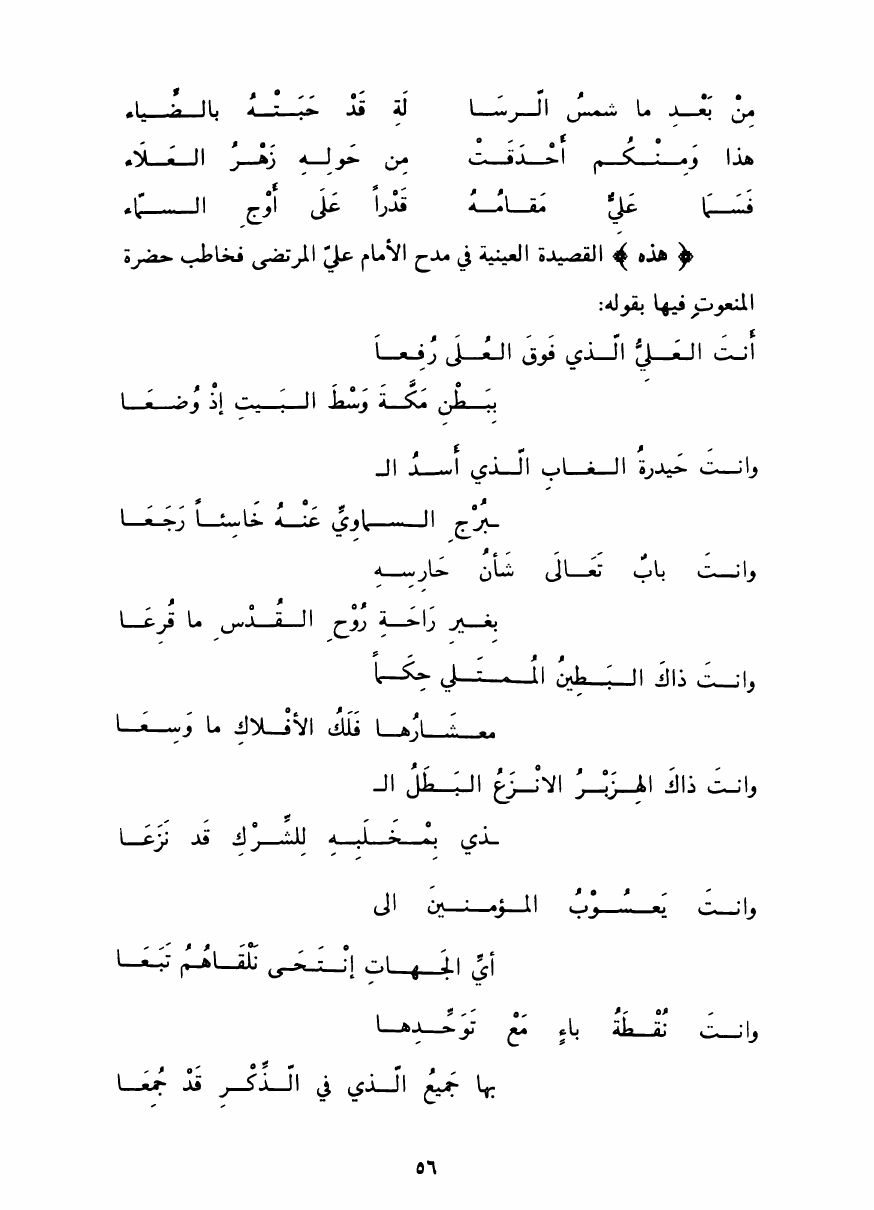 مِنْ بَعْدِ ما شمسُ الّرسَا لَةِ قَدْ حَبَتْهُ بالضُّياء
هذا وَمِنْكُم أُحْدَقَتْ مِن حَولِهِ زُهْرُ العَلَاء
فَسَمَا عَليٌّ مَقامُهُ قَدْراً عَلَى أَوْجِ السمَّاء
﴿ هذه ﴾ القصيدة العينية في مدح الأمام عليّ المرتضى فخاطب حضرة
المنعوتِ فيها بقوله:
أَنتَ العَليُّ الّذي فَوقَ العُلَى رُفِعاَ
بِبَطْنِ مَكَّةَ وَسْطَ البَيتِ إذْ وُضعَا
وانتَ حَيدرةُ الغابِ الّذي أَسدُ الـ
ـبُرْجِ السماويِّ عَنْهُ خَاسِئاً رَجَعَا
وانتَ بابٌ تَعَالَى شَأنُ حَارِسِهِ
بِغيرِ رَاحَةِ رُوْحِ القُدْسِ ما قُرِعَا
وانتَ ذاكَ البَطِينُ المُمتَلي حِكَماً
معشَارُها فَلَكُ الأفْلاكِ ما وَسِعَا
وانتَ ذاكَ الهِزَبْرُ الانْزَعُ البَطَلُ الـ
ـذي بِمْخَلَبِهِ لِلشِّرْكِ قد نَزَعَا
وانتَ يَعسُوْبُ المؤمنينَ الى
أيِّ الجَهاتِ إنْتَحَى نَلْقَاهُمُ تَبَعَا
وانتَ نُقْطَةُ باءٍ مَعْ تَوَحِّدِها
بها جَميعُ الّذي في الّذِّكْرِ قَدْ جُمِعَا
٥٦